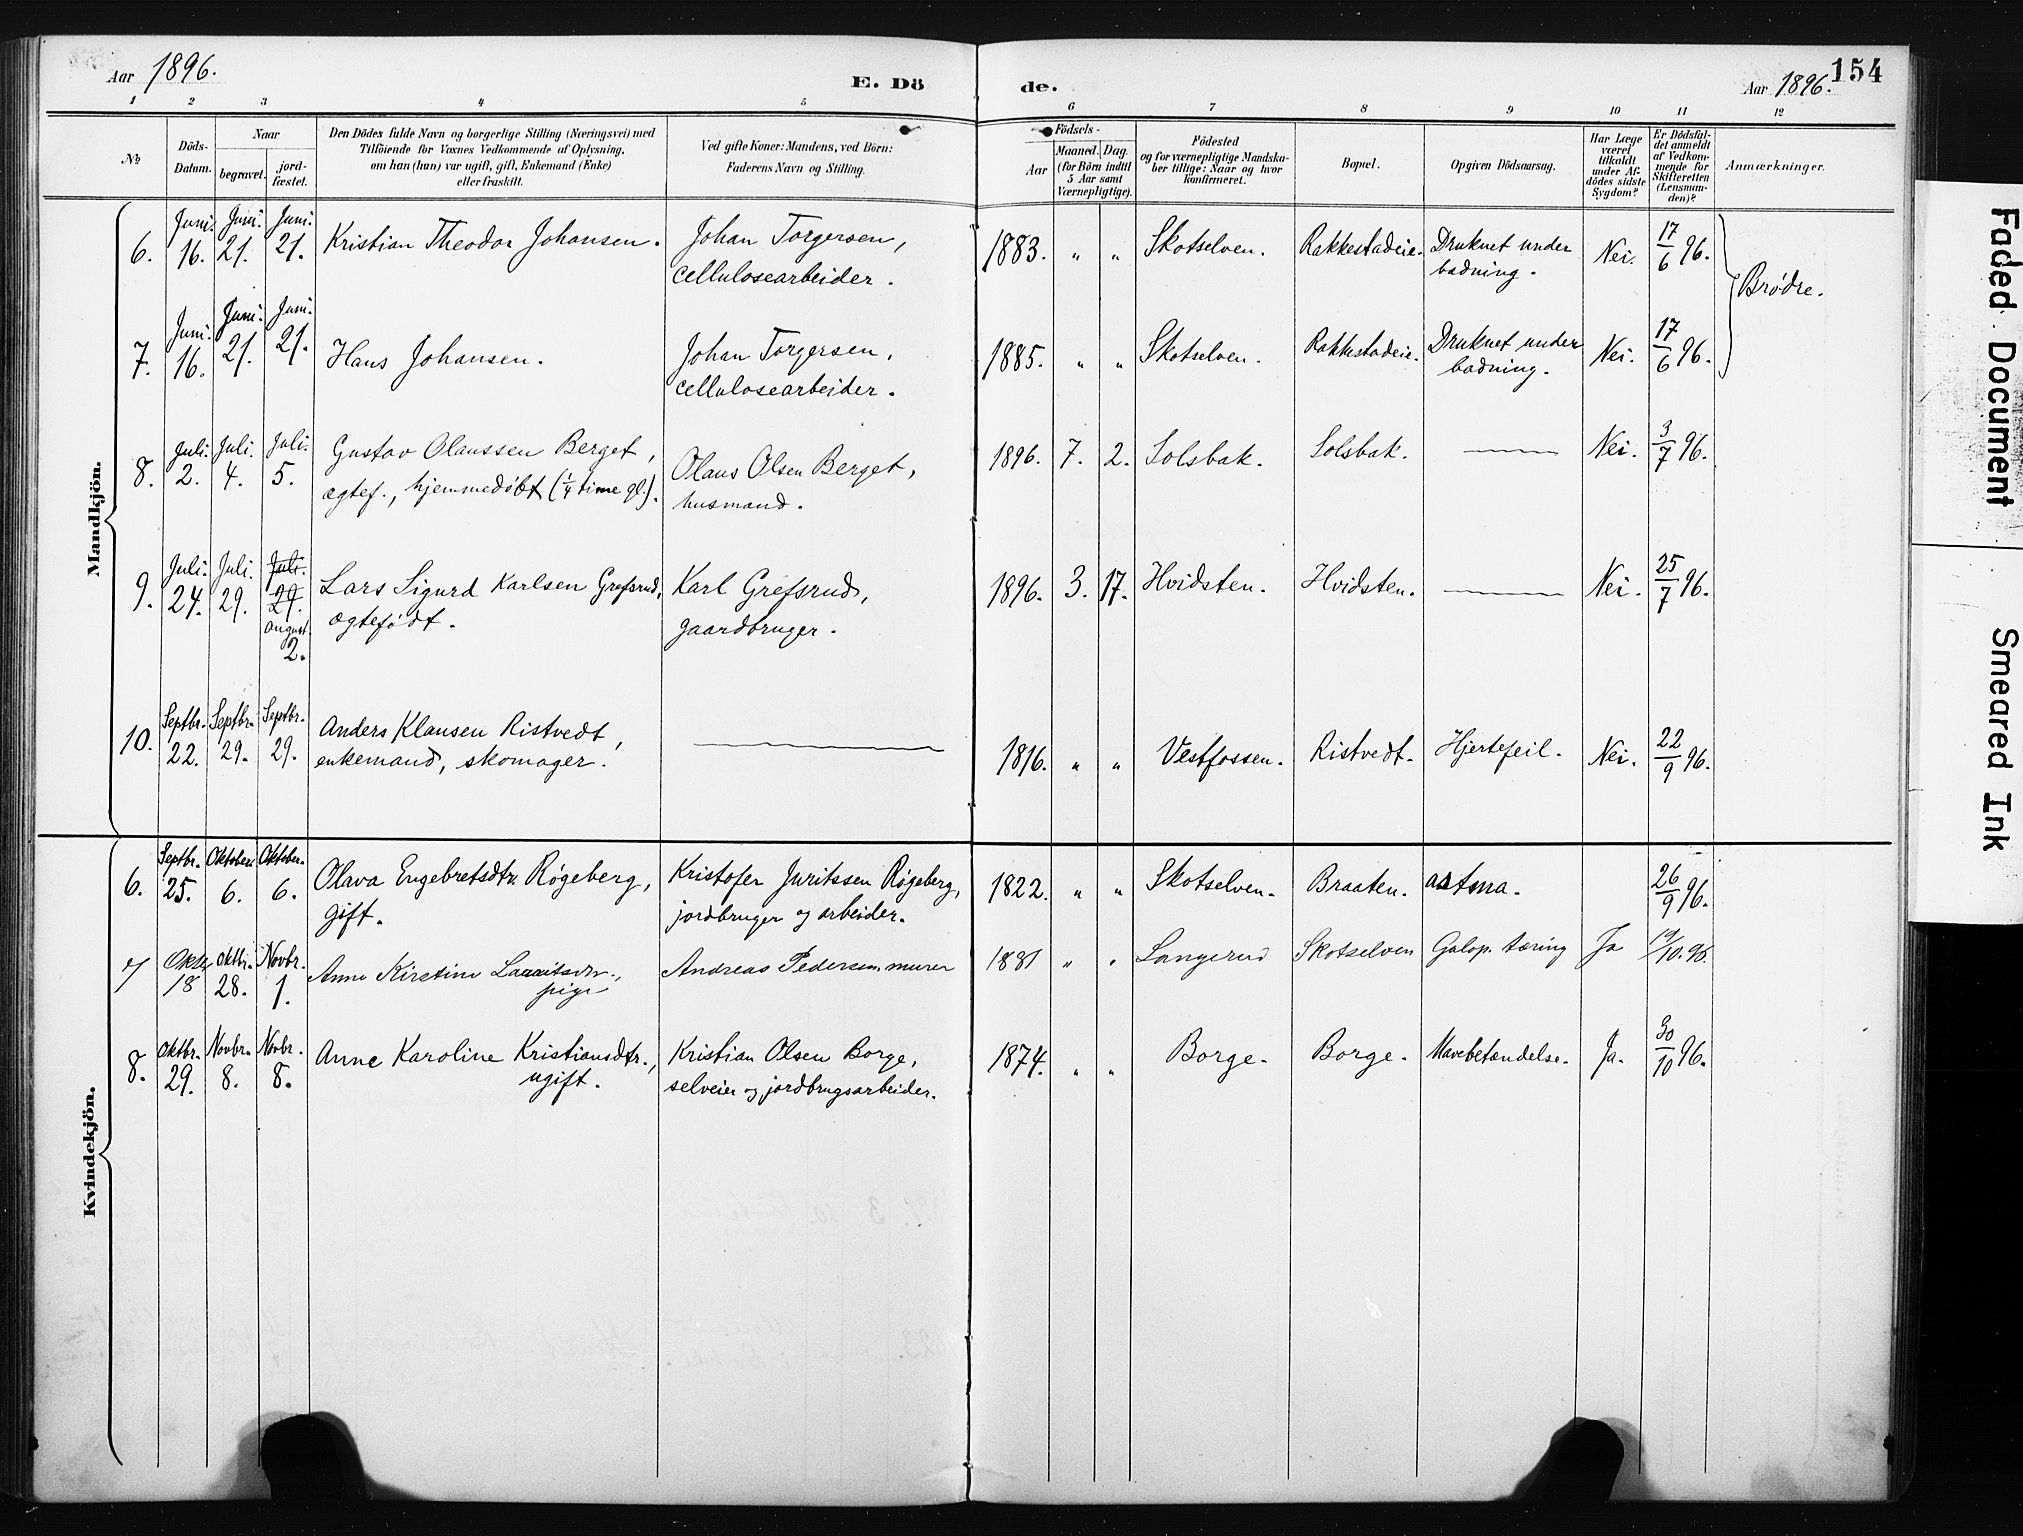 Aar 1896.
E. Dö
de.
Aar 1896.
154
1 2 3 4 5 6 7 8 9 10 11 12
No
Döds-
Datum.
Naar
begravet.
jord-
fæstet.
Den Dödes fulde Navn og borgerlige Stilling (Næringsvei) med
Tilföiende for Voxnes Vedkommende af Oplysning,
om han (hun) var ugift, gift, Enkemand (Enke)
eller fraskilt.
Ved gifte Koner: Mandens, ved Börn:
Faderens Navn og Stilling.
Födsels-
Aar
Maaned. Dag.
(for Börn indtil
5 Aar samt
Værnepligtige).
Födested
og for værnepligtige Mandska-
ber tillige: Naar og hvor
konfirmeret.
Bopæl.
Opgiven Dödsaarsag.
Har Læge
været
tilkaldt
under Af-
dödes sidste
Sygdom?
Er Dödsfal-
det anmeldt
af Vedkom-
mende for
Skifteretten
(Lensman-
den)?
Anmærkninger.
Mandkjön.
6. Juni. 16. Juni. 21. Juni. 21. Kristian Theodor Johansen. Johan Torgersen, 1883. " " Skotselven. Rakkestadeie. Druknet under Nei. 17/6 96.
cellulosearbeider. badning.
Brødre.
7. Juni. 16. Juni. 21. Juni. 21. Hans Johansen. Johan Torgersen, 1885. " " Skotselven. Rakkestadeie. Druknet under Nei. 17/6 96.
cellulosearbeider. badning.
8. Juli. 2. Juli. 4. Juli. 5. Gustav Olaussen Berget, Olaus Olsen Berget, 1896. 7. 2. Solsbak. Solsbak. — Nei. 3/7 96.
ægtef., hjemmedøbt (1/4 time gl.). husmand.
9. Juli. 24. Juli. 29. Juli. 29. august. 2. Lars Sigurd Karlsen Grefsrud, Karl Grefsrud, 1896. 3. 17. Hvidsten. Hvidsten. — Nei. 25/7 96.
ægtefødt. gaardbruger.
10. Septbr. 22. Septbr. 29. Septbr. 29. Anders Klausen Ristvedt, — 1816. " " Vestfossen. Ristvedt. Hjertefeil. Nei. 22/9 96.
enkemand, skomager.
Kvindekjön.
6. Septbr. 25. Oktober. 6. Oktober. 6. Olava Engebretsdtr. Røgeberg, Kristofer Juritssen Røgeberg, 1822. " " Skotselven. Braaten. astma. 26/9 96.
gift. jordbruger og arbeider.
7 Oktbr 18 Oktbr. 28. Novbr. 1. Anne Kirstine Andreas Pedersen, murer 1881 " " Langerud Skotselven Galop. tæring Ja 19/10.96.
pige
8. Oktbr. 29. Novbr. 8. Novbr. 8. Anne Karoline Kristiansdtr., Kristian Olsen Borge, 1874. " " Borge. Borge. Mavebetændelse. Ja. 30/10 96.
ugift. selveier og jordbrugsarbeider.
Faded Document
Smeared Ink